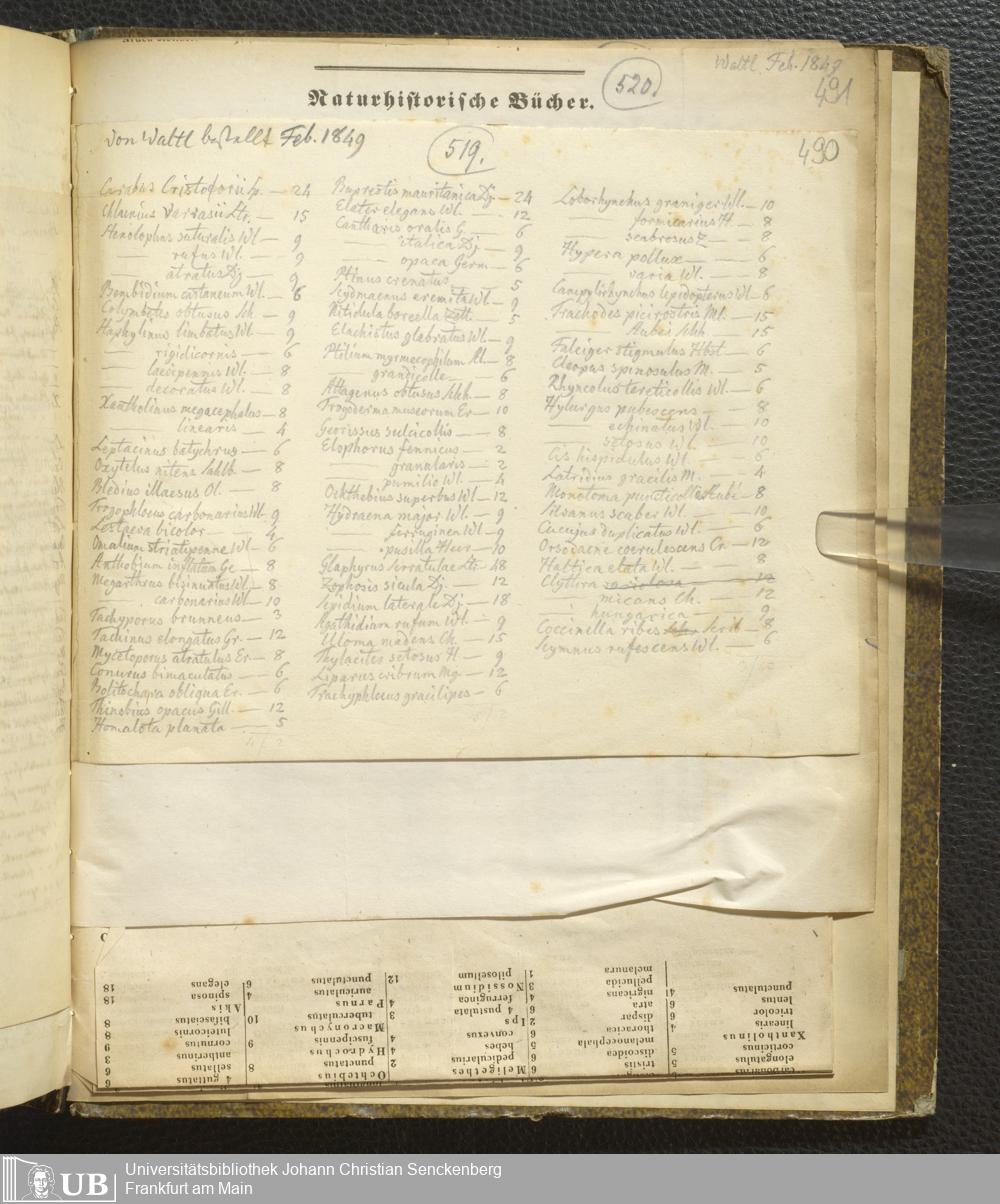 Waltl Feb. 1849
491
520.
Naturhistorische Bücher.
von Waltl bestellt Feb. 1849
519.
490
Carabus Cristoforii Sp. — 24
Chlaenius varvasii Str. — 15
Acnolophus suturalis Wl — 9
— rufus Wl. — 9
— atratus Dj — 9
Bembidium castaneum Wl. — 6
Colymbetes obtusus Sch. — 9
Staphylinus limbatus Wl — 9
— rigidicornis — 6
— laevipennis Wl. — 8
— decoratus Wl. — 8
Xantholinus megacephalus — 8
— linearis — 4
Leptacinus batychrus — 6
Oxytelus nitens Sahlb — 8
Bledius illaesus Ol. — 8
Trogophloeus carbonarius Wl. 9
Lesteva bicolor — 4
Omalium striatipenne Wl — 6
Anthobium inflatum Ge — 8
Megarthrus bisinuatus Wl. — 8
— carbonarius Wl — 10
Tachyporus brunneus — 3
Tachinus elongatus Gr. — 12
Mycetoporus atratulus Er — 8
Conurus bimaculatus — 6
Bolitochara obliqua Er. — 6
Thinobius opacus Gill — 12
Homalota planata — 5
Buprestis mauritanica Dj — 24
Elater elegans Wl. — 12
Cantharis oralis G. — 6
— italica Dj — 9
— opaca Germ — 6
Ptinus crenatus — 5
Scydmaenus eremita Wl — 9
Nitidula boreella Zett. — 5
Elachistus glabratus Wl. — 9
Ptilium myrmecophilum Al — 8
— grandicolle — 6
Attagenus obtusus Schh. — 8
Trogoderma museorum Er — 10
Georissus sulcicollis — 8
Elophorus fennicus — 2
— granularis — 2
— pumilio Wl. — 4
Ochthebius superbus Wl — 12
Hydraena major Wl. — 9
— ferruginea Wl — 9
— pusilla Heer — 10
Glaphyrus serratulae Str. 48
Zophosis sicula Dj. — 12
Sepidium laterale Dj — 18
Agathidium rufum Wl. — 9
Uloma madens Ch. — 15
Thylacites setosus H — 9
Liparus cribrum Mg — 12
Trachyphloeus gracilipes — 6
Loborhynchus graniger Wl. — 10
— formicarius H. — 8
— scabrosus Z — 8
Hypera pollux — 6
— varia Wl. — 8
Campylirhynchus lepidopterus Wl — 6
Trachodes picirostris Ml. — 15
— Aubei Schh — 15
Falciger stigmulus Hbst — 6
Cleopus spinosulus M. — 5
Rhyncolus tereticollis Wl. — 6
Hylurgus pubescens — 8
— echinatus Wl. — 10
— setosus Wl. — 10
Cis hispidulus Wl. — 6
Latridius gracilis M. — 4
Monotoma puncticollis Aubé — 8
Silvanus scaber Wl. — 10
Cucujus duplicatus Wl. — 6
Orsodacne coerulescens Cr. — 12
Haltica elata Wl. — 8
Clythra variolosa — 12
— micans Ch. — 12
— hungarica — 9
Coccinella ribes Scrib — 8
Scymnus rufescens Wl. — 6
carbonarius
elongatulus 5
corticinus 5
Xantholinus
linearis 4
tricolor 6
lentus 6
punctulatus 4
tristis 6
discoidea 6
melanocephala 5
thoracica 6
dispar 2
atra 6
nigricans 4
pellucida 3
melanura 1
Meligethes
pedicularius
hebes
convexus
Ips
4 pustulata
ferruginea
Nossidium
pilosellum
Ochtebius
punctatus 2
Hydrochus 4
fuscipennis 4
Macronychus
tuberculatus 3
Parnus 4
auriculatus
punctulatus 12
4 guttatus 6
sellatus 6
antherinus 3
cornutus 9
luteicornis 8
bifasciatus 8
Akis
spinosa 18
elegans 18
8
9
10
4
6
UB
Universitätsbibliothek Johann Christian Senckenberg
Frankfurt am Main